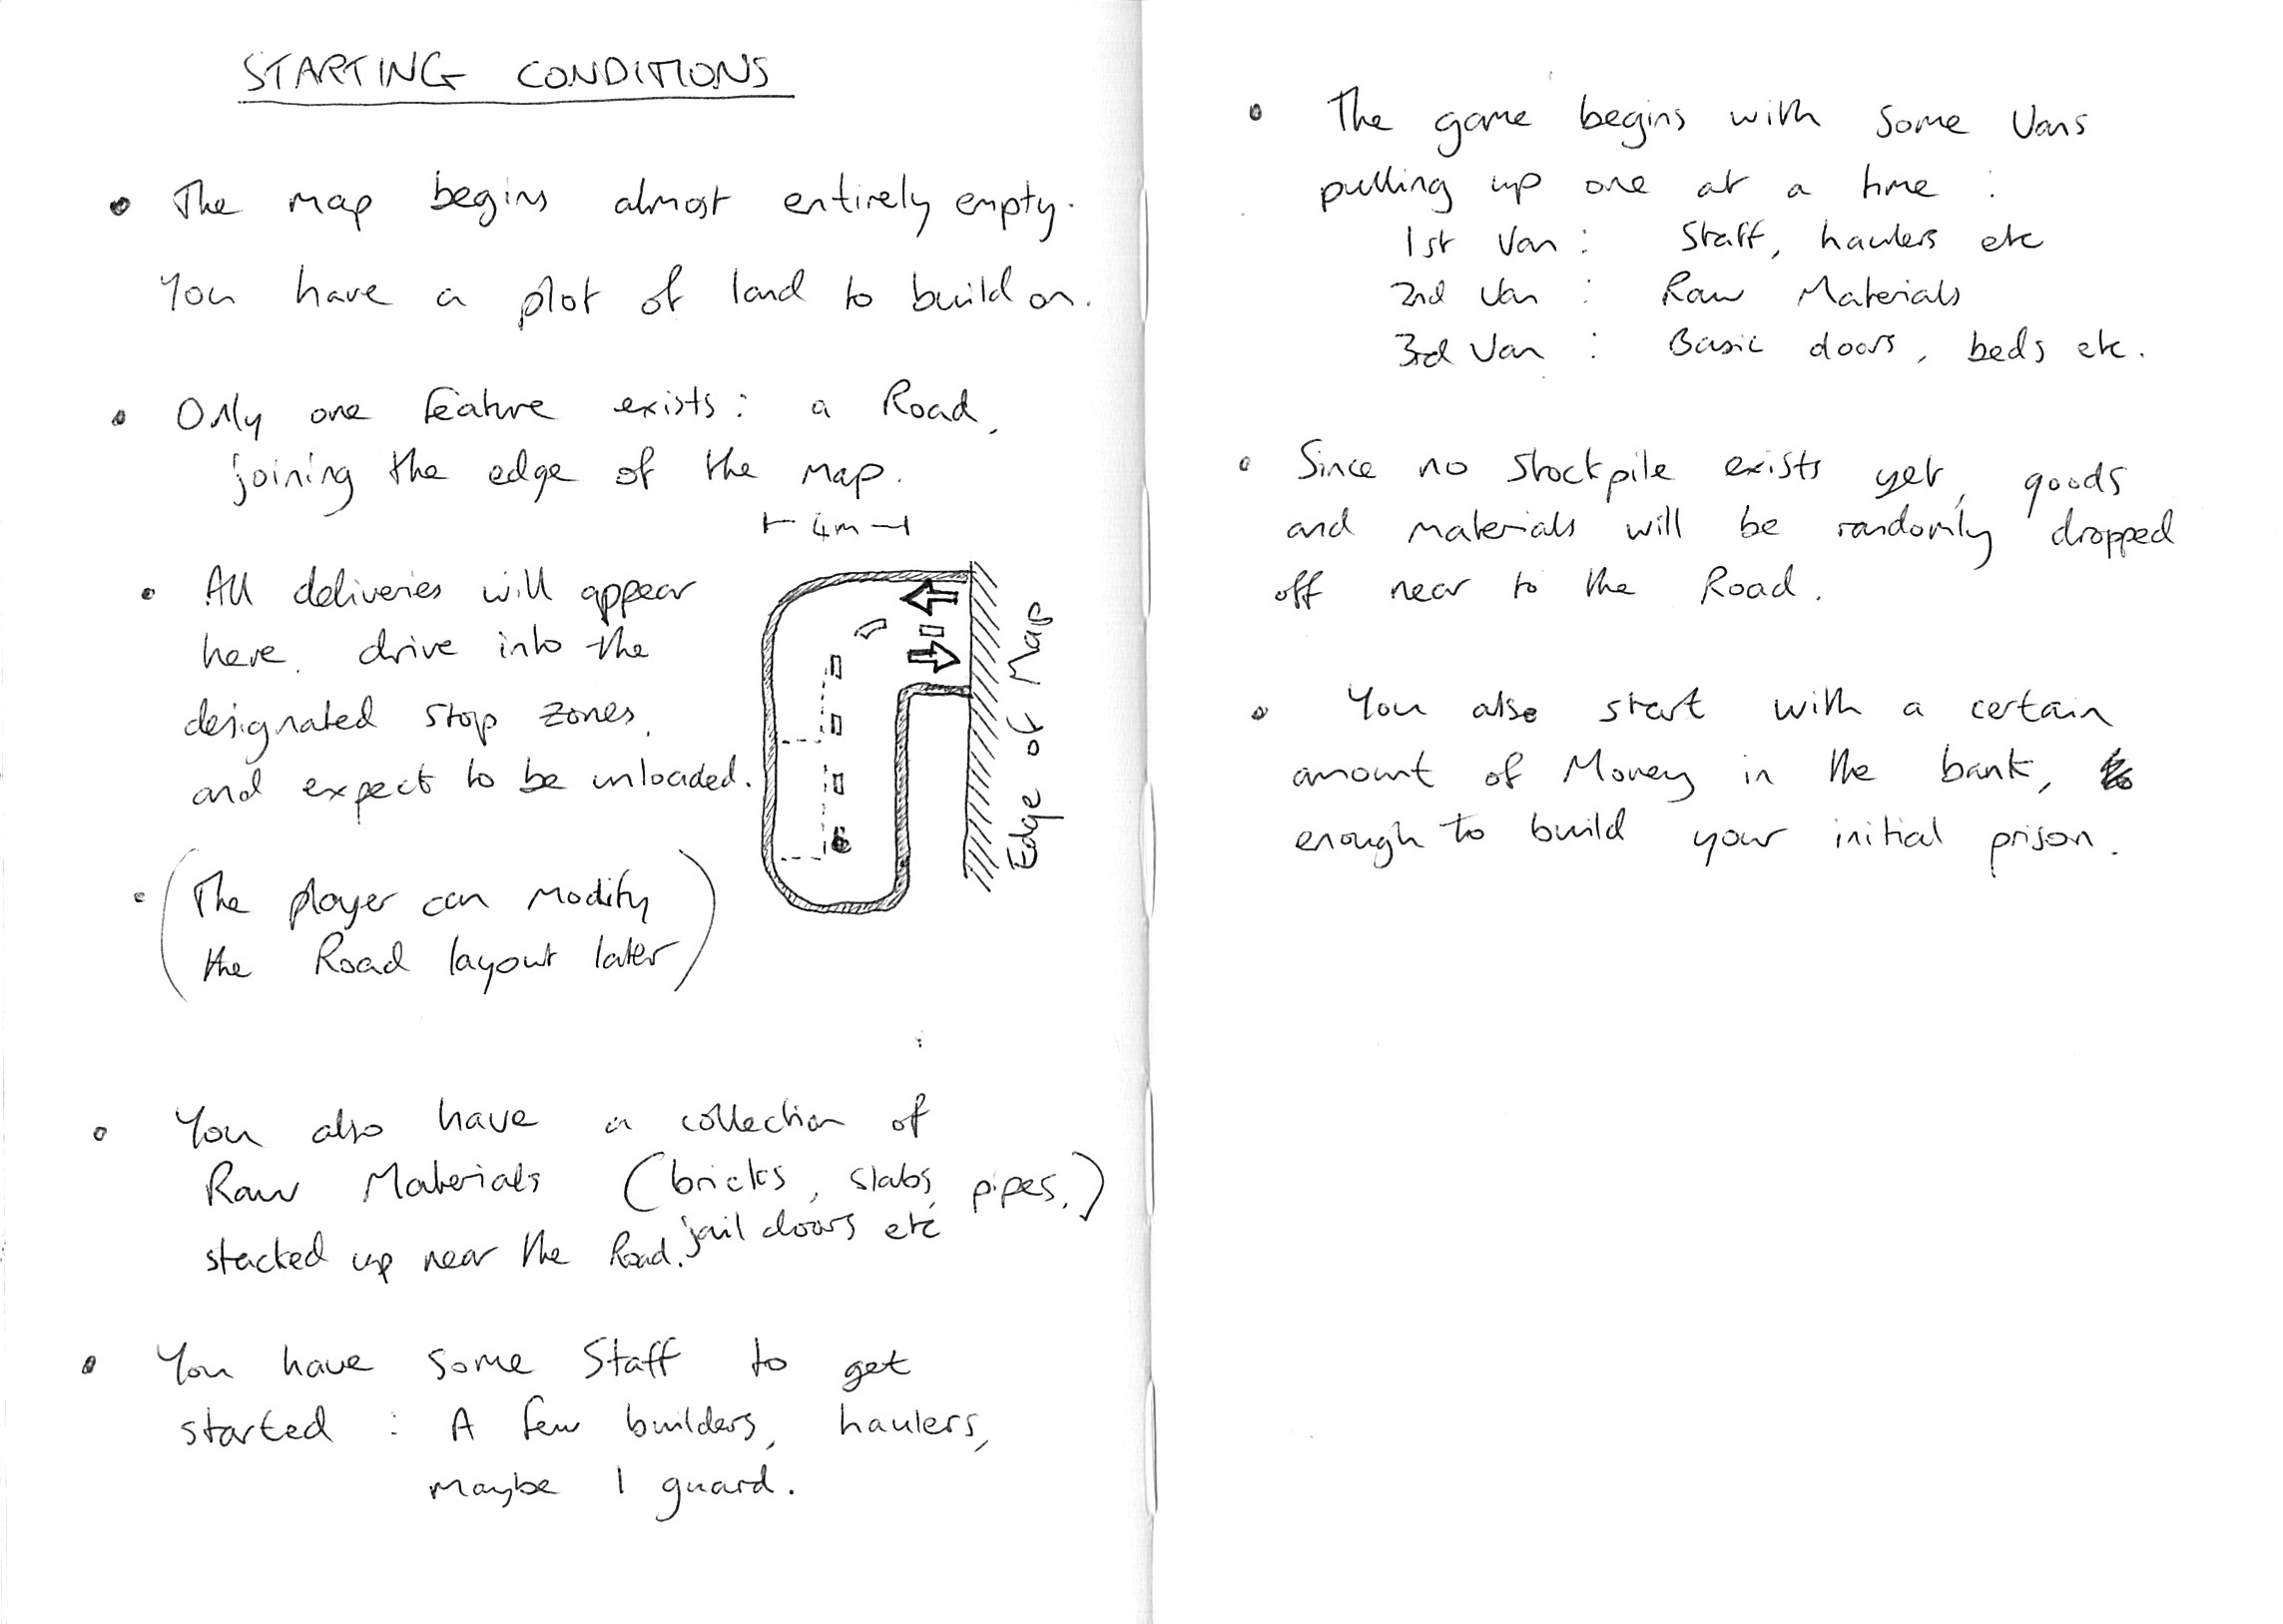 STARTING CONDITIONS
• The map begins almost entirely empty.
You have a plot of land to build on.
• Only one feature exists: a Road,
joining the edge of the map.
• All deliveries will appear
here, drive into the
designated stop zones,
and expect to be unloaded.
• (The player can modify
the Road layout later)
4m
Edge of Map
• You also have a collection of
Raw Materials (bricks, slabs, pipes,)
jail doors etc
stacked up near the Road.
• You have some Staff to get
started : A few builders, haulers,
maybe 1 guard.
• The game begins with some Vans
pulling up one at a time :
1st Van : Staff, haulers etc
2nd Van : Raw Materials
3rd Van : Basic doors, beds etc.
• Since no stockpile exists yet, goods
and materials will be randomly dropped
off near to the Road.
• You also start with a certain
amount of Money in the bank,
enough to build your initial prison.